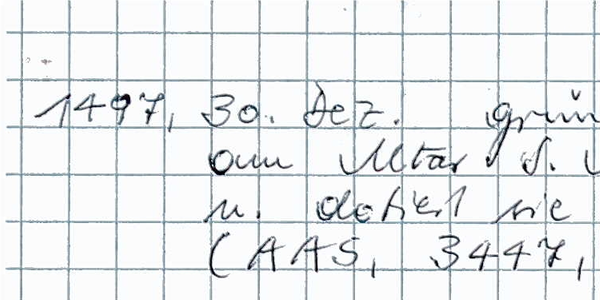 1497, 30. Dez. grün
am Altar S.
u. dotiert sie
(AAS, 3447,